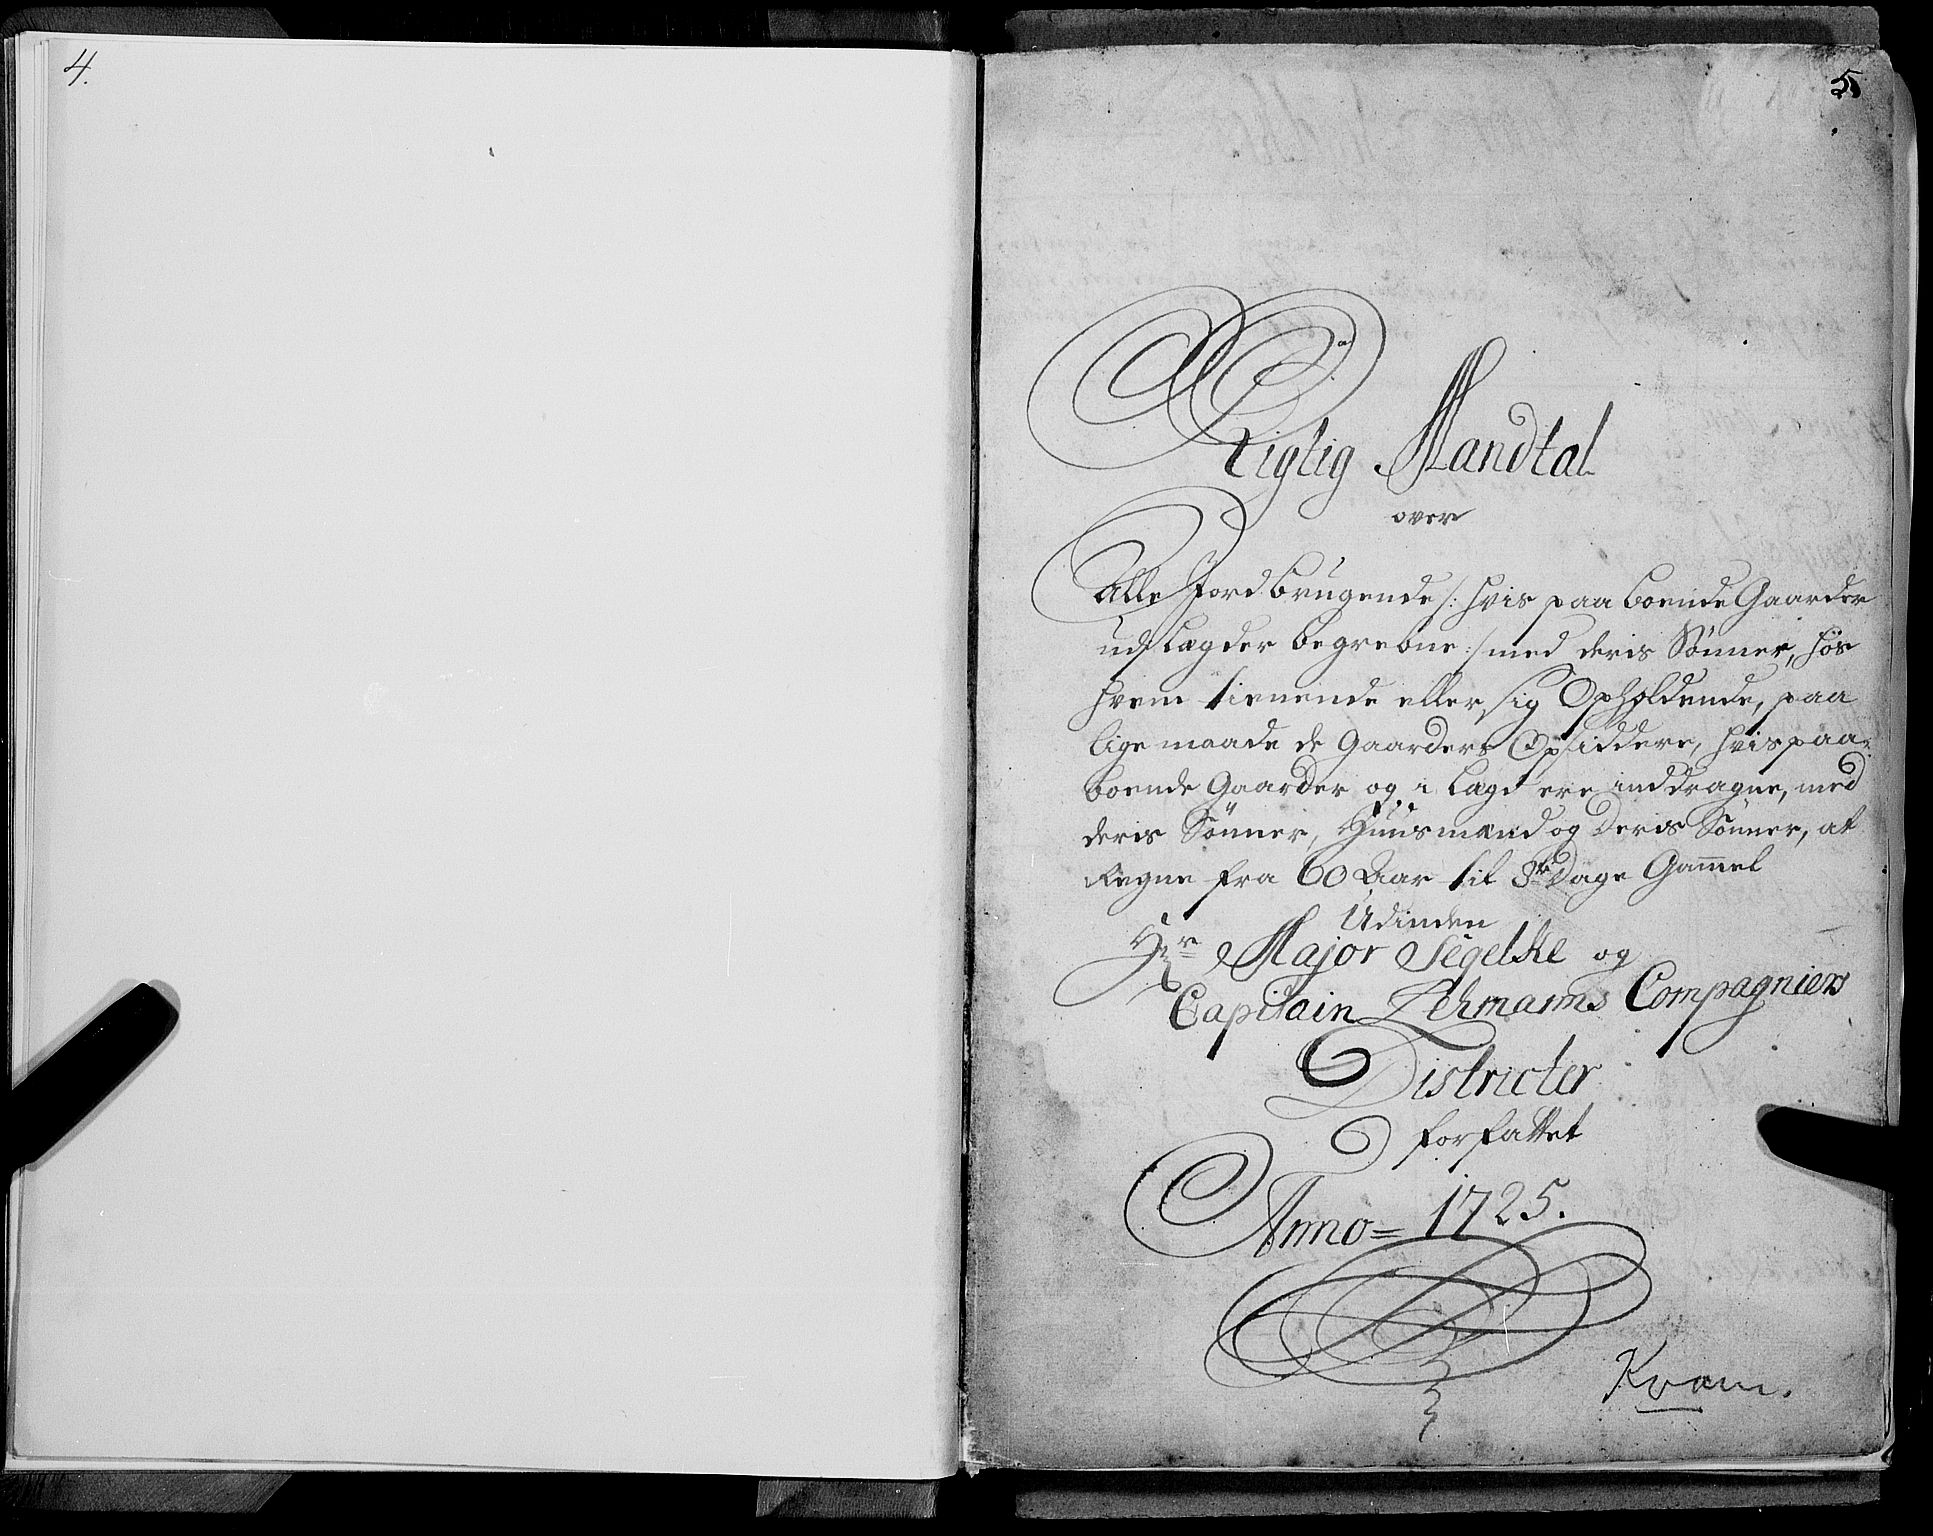 4.
5
Rigtig Mandtal
over
Alle Jordbrugende /: hvis paa boende Gaarder
udj Lægder begrebne :/ med deris Sønner, hos
hvem tienende eller sig Opholdende, paa
lige maade de Gaarders Opsiddere, hvis paa-
boende Gaarder og i Lægd ere inddragne, med
deris Sønner, Huusmænd og Deris Sønner, at
Regne fra 60 Aar til 8te Dage Gam̅el
Udinden
Hr Major Segelke og
Capitain Lehmanns Compagniers
Districter
forfattet
Anno = 1725.
Kvam.